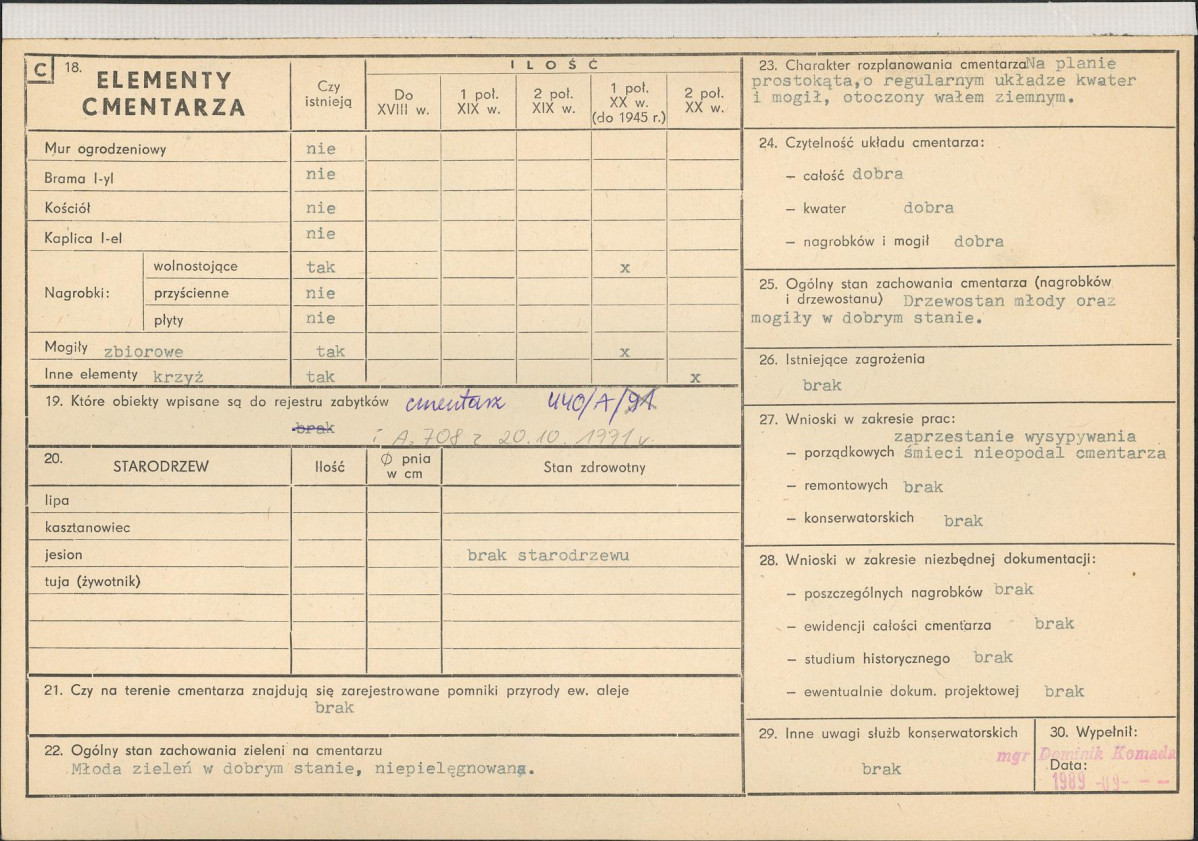 C 18. ELEMENTY CMENTARZA
Czy istnieją
ILOŚĆ
Do XVIII w.
1 poł. XIX w.
2 poł. XIX w.
1 poł. XX w. (do 1945 r.)
2 poł. XX w.
Mur ogrodzeniowy nie
Brama I-yl nie
Kościół nie
Kaplica I-el nie
Nagrobki: wolnostojące tak x
przyścienne nie
płyty nie
Mogiły zbiorowe tak x
Inne elementy krzyż tak x
19. Które obiekty wpisane są do rejestru zabytków cmentarz 440/A/91
brak i A. 708 z 20.10.1991 r.
20. STARODRZEW Ilość Ø pnia w cm Stan zdrowotny
lipa
kasztanowiec
jesion brak starodrzewu
tuja (żywotnik)
21. Czy na terenie cmentarza znajdują się zarejestrowane pomniki przyrody ew. aleje
brak
22. Ogólny stan zachowania zieleni na cmentarzu
Młoda zieleń w dobrym stanie, niepielęgnowana.
23. Charakter rozplanowania cmentarza Na planie
prostokąta,o regularnym układze kwater
i mogił, otoczony wałem ziemnym.
24. Czytelność układu cmentarza:
– całość dobra
– kwater dobra
– nagrobków i mogił dobra
25. Ogólny stan zachowania cmentarza (nagrobków
i drzewostanu) Drzewostan młody oraz
mogiły w dobrym stanie.
26. Istniejące zagrożenia
brak
27. Wnioski w zakresie prac:
zaprzestanie wysypywania
– porządkowych śmieci nieopodal cmentarza
– remontowych brak
– konserwatorskich brak
28. Wnioski w zakresie niezbędnej dokumentacji:
– poszczególnych nagrobków brak
– ewidencji całości cmentarza brak
– studium historycznego brak
– ewentualnie dokum. projektowej brak
29. Inne uwagi służb konserwatorskich
brak
30. Wypełnił:
mgr Dominik Komada
Data:
1989 -09- - -